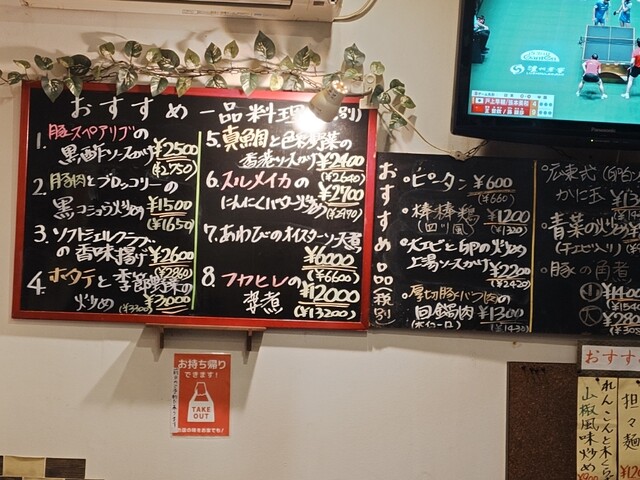 おすすめ 一品料理
別)
1. 豚スペアリブの
黒酢ソースがけ ¥2500
(2750)
2. 豚肉とブロッコリーの
黒コショウ炒め ¥1500
(1650)
3. ソフトシェルクラブ
の香味揚げ ¥2600
(2860)
4. ホタテと季節野菜の
炒め ¥3000
(3300)
5. 真鯛と色彩野菜の
香港ソースがけ ¥2400
(¥2640)
6. スルメイカの ¥2700
にんにくバター炒め (¥2970)
7. あわびのオイスターソース煮
¥6000
(¥6600)
8. フカヒレの
姿煮 ¥12000
(13200)
おすすめ品(税別)
・ピータン ¥600
(660)
・棒棒鶏 1200
(四川風) (1320)
・大エビと卵の炒め
上湯ソースがけ ¥2200
(¥2420)
・厚切豚バラ肉の
回鍋肉 ¥1300
(ホイコーロ) (1430)
・広東式
かに玉
・青菜の炒め
(エビ入り)
・豚の角煮
小 ¥1400
大 ¥280
お持ち帰り
できます!
TAKE
OUT
お店の味をお家でも!
Panasonic
おすす
担々麺
れんこんと木くら
山椒風味炒め